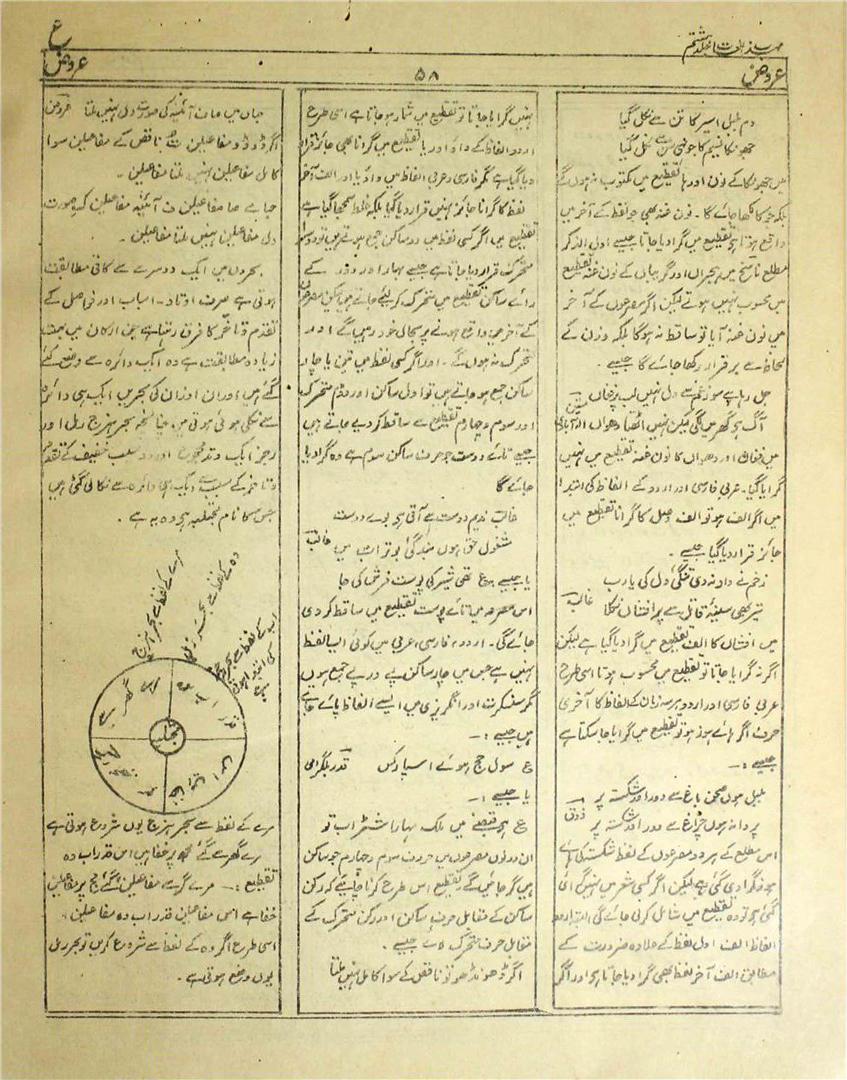 ع
مہذب اللغات جلد ہشتم
عروض
۵۸
عروض
دم بلبل اسیر کا تن سے نکل گیا
جھونکا نسیم کا جونہی سن سے نکل گیا
میں جھونکا کے نون اور ہا تقطیع میں مکتوب نہ ہوں گے
بلکہ جوکا لکھا جائے گا۔ نون غنہ بھی جو لفظ کے آخر میں
واقع ہوتا ہے تقطیع میں گرا دیا جاتا جیسے اول الذکر
مطلع ناسخ میں ہجراں اور گریباں کے نون غنہ تقطیع
میں محسوب نہیں ہوتے لیکن اگر مصرعوں کے آخر
میں نون غنہ آیا تو ساقط نہ ہوگا بلکہ وزن کے
لحاظ سے برقرار رکھا جائے گا جیسے۔
جل رہا ہے سوز غم سے دل نہیں لب پر فغاں
آگ ہے گھر میں لگی لیکن نہیں اٹھتا دھواں
میں فغاں اور دھواں کا نون غنہ تقطیع میں نہیں
گرایا گیا۔ عربی فارسی اور اردو کے الفاظ کی ابتدا
میں اگر الف ہو تو الف وصل کا گرانا تقطیع میں
جائز قرار دیا گیا جیسے۔
زخم نے داد نہ دی تنگی دل کی یارب
تیر بھی سینۂ قاتل سے پر افشاں نکلا غالب
میں افشاں کا الف تقطیع میں گرا دیا گیا ہے لیکن
اگر نہ گرایا جاتا تو تقطیع میں محسوب ہوتا اسی طرح
عربی فارسی اور اردو ہر سہ زبان کے الفاظ کا آخری
حرف اگر ہائے ہوز ہو تو تقطیع میں گرایا جا سکتا ہے
جیسے :۔
بلبل ہوں صحن باغ سے دور اور شکستہ پر
پروانہ ہوں چراغ سے دور اور شکستہ پر ذوق
اس مطلع کے ہر دو مصرعوں کے لفظ شکستہ کی ہائے
ہوز گرا دی گئی ہے لیکن اگر کسی شعر میں نہیں گرائی
گئی ہے تو وہ تقطیع میں شامل کر لی جائے گی
الفاظ الف اول لفظ کے علاوہ ضرورت کے
مطابق الف آخر لفظ بھی گرا دیا جاتا ہے اور اگر
نہیں گرایا جاتا تو تقطیع میں شمار ہو جاتا ہے اسی طرح
اردو الفاظ کے واؤ اور یا تقطیع میں گرانا بھی جائز قرار
دیا گیا ہے مگر فارسی و عربی الفاظ میں واؤ یا اور الف آخر
لفظ کا گرانا جائز نہیں قرار دیا گیا بلکہ غلط سمجھا گیا ہے
تقطیع میں اگر کسی لفظ میں دو ساکن جمع ہوتے ہیں تو دوسرا
متحرک قرار دیا جاتا ہے جیسے بہار اور دور کے
رائے ساکن تقطیع میں متحرک کر لیئے جاتے ہیں لیکن مصرعوں
کے آخر میں واقع ہونے پر بحال خود رہیں گے اور
متحرک نہ ہوں گے۔ اور اگر کسی لفظ میں تین یا چار
ساکن جمع ہو جاتے ہیں تو اول ساکن اور دوم متحرک
اور سوم و چہارم تقطیع سے ساقط کر دیے جاتے ہیں
جیسے تائے دوست جو حرف ساکن سوم ہے وہ گرا دیا
جائے گا
غالب ندیم دوست سے آتی ہے بوئے دوست
مشغول حق ہوں بندگی بو تراب میں غالب
یا جیسے ع تھی شیر کی پوست فرش کی جا
اس مصرعہ میں تائے پوست تقطیع میں ساقط کر دی
جائے گی۔ اردو، فارسی، عربی میں کوئی ایسا لفظ
نہیں ہے جس میں چار ساکن پے در پے جمع ہوں
مگر سنسکرت اور انگریزی میں ایسے الفاظ پائے جاتے
ہیں جیسے :۔
ع سول جج ہوئے اسپارکس قدر بلگرامی
یا جیسے :۔
ع ہے قبضے میں ملک بہار اشٹر اب تو
ان دونوں مصرعوں میں حروف سوم و چہارم جو ساکن
ہیں گر جائیں گے تقطیع اس طرح کرنا چاہیئے کہ رکن
ساکن کے مقابل حرف ساکن اور رکن متحرک کے
مقابل حرف متحرک لائے جیسے۔
اگر ڈھونڈھو تو ناقص کے سوا کامل نہیں ملتا
جہاں میں صاف آئینہ کی صورت دل نہیں ملتا عروض
اگر ڈوڈو مفاعیلن ت ناقص کے مفاعیلن سوا
کامل مفاعیلن نہیں ملتا مفاعیلن۔
جہا مے صا مفاعیلن ف آئینہ مفاعیلن کے صورت
دل مفاعیلن نہیں ملتا مفاعیلن۔
بحروں میں ایک دوسرے سے کافی مطابقت
ہوتی ہے صرف اوتاد۔ اسباب اور فواصل کے
تقدم و تاخر کا فرق رہتا ہے جن ارکان میں بہت
زیادہ مطابقت ہے وہ ایک دائرہ سے وضع کئے
گئے ہیں اور ان اوزان کی بحریں ایک ہی دائرہ
سے نکلی ہوئی ہوتی ہیں۔ چنانچہ بحر ہزج رمل اور
رجز ایک وتد مجموع اور دو سبب خفیف کے تقدم
و تاخر کے سبب سے ایک ہی دائرہ سے نکالی گئی ہیں
جس کا نام مجتلبہ ہے وہ یہ ہے۔
مرے کے لفظ سے بحر ہزج
وہ کے لفظ سے بحر رمل
اب کے لفظ سے بحر رجز
کی ابتدا ہوتی ہے
مجتلبہ
مرے کے لفظ سے بحر ہزج یوں شروع ہوتی ہے
مرے گھر سے گئے کچھ پر خفا ہیں اس قدر اب وہ
تقطیع :۔ مرے گرسے مفاعیلن گئے کج پر مفاعیلن
خفا ہے اس مفاعیلن قدر اب وہ مفاعیلن۔
اسی طرح اگر وہ کے لفظ سے شروع کریں تو بحر رمل
یوں وضع ہوتی ہے۔